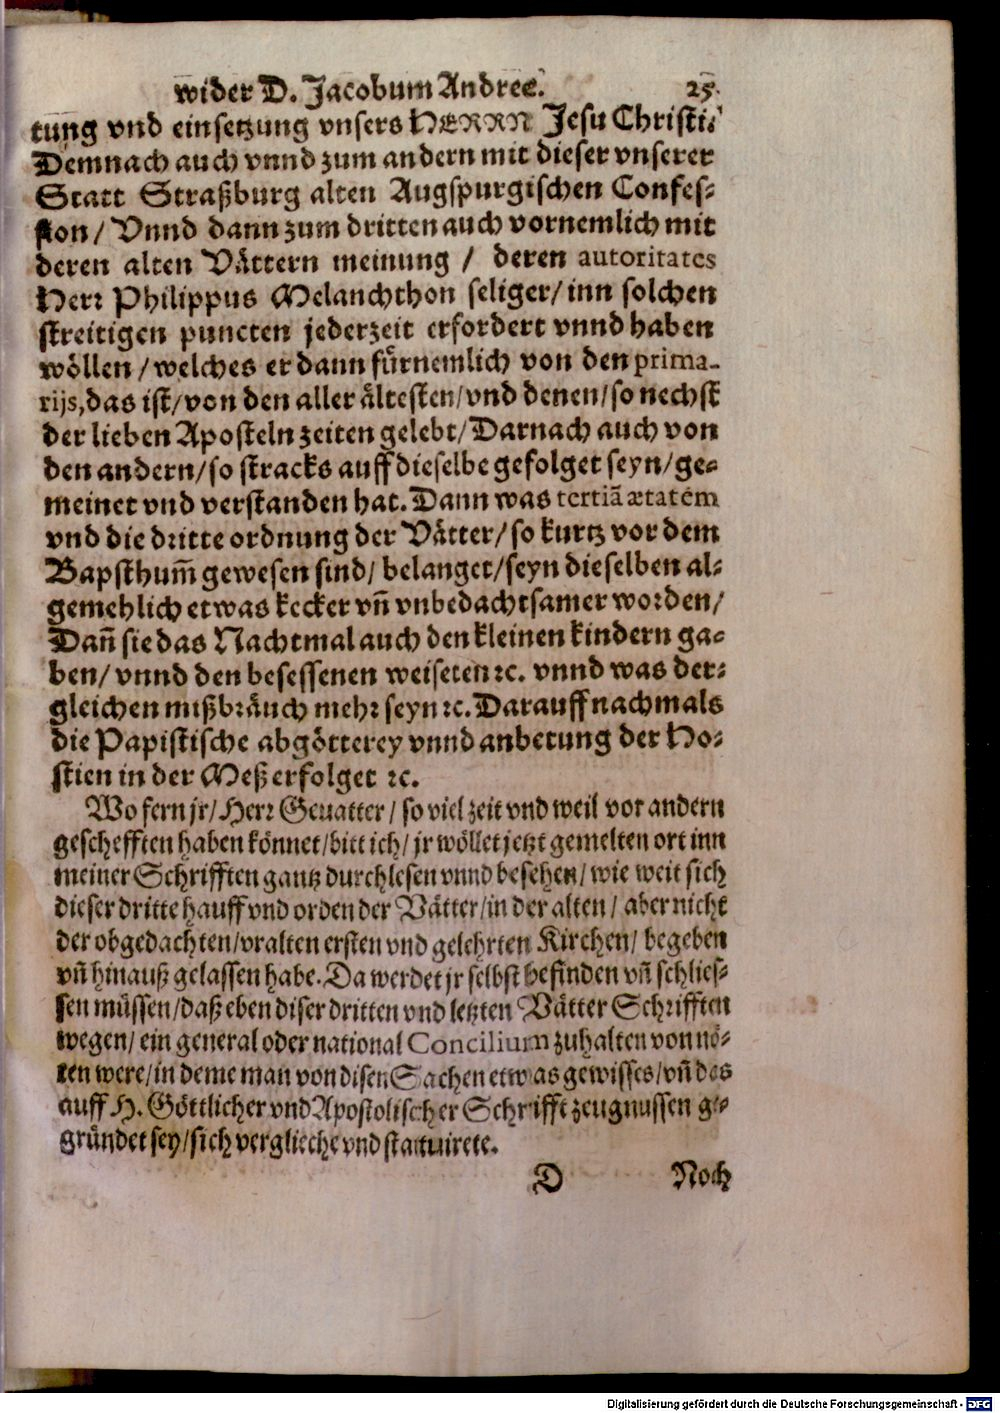 wider D. Jacobum Andree. 25.
tung vnd einsetzung vnsers HERRN Jesu Christi/
Demnach auch vnnd zum andern mit dieser vnserer
Statt Straßburg alten Augspurgischen Confes⸗
sion/ Vnnd dann zum dritten auch vornemlich mit
deren alten Vättern meinung / deren autoritates
Herr Philippus Melanchthon seliger/ inn solchen
streitigen puncten jederzeit erfordert vnnd haben
wöllen / welches er dann fürnemlich von den prima-
rijs, das ist/ von den aller ältesten/ vnd denen/ so nechst
der lieben Aposteln zeiten gelebt/ Darnach auch von
den andern/ so stracks auff dieselbe gefolget seyn/ ge⸗
meinet vnd verstanden hat. Dann was tertiã ætatem
vnd die dritte ordnung der Vätter/ so kurtz vor dem
Bapsthum̃ gewesen sind/ belanget/ seyn dieselben al⸗
gemehlich etwas kecker vñ vnbedachtsamer worden/
Dañ sie das Nachtmal auch den kleinen kindern ga⸗
ben/ vnnd den besessenen weiseten ꝛc. vnnd was der⸗
gleichen mißbräuch mehr seyn ꝛc. Darauff nachmals
die Papistische abgötterey vnnd anbetung der Ho⸗
stien in der Meß erfolget ꝛc.
Wo fern jr/ Herr Geuatter/ so viel zeit vnd weil vor andern
geschefften haben könnet/ bitt ich/ jr wöllet jetzt gemelten ort inn
meiner Schrifften gantz durchlesen vnnd besehen/ wie weit sich
dieser dritte hauff vnd orden der Vätter/ in der alten/ aber nicht
der obgedachten/ vralten ersten vnd gelehrten Kirchen/ begeben
vñ hinauß gelassen habe. Da werdet jr selbst befinden vñ schlies⸗
sen müssen/ daß eben diser dritten vnd letzten Vätter Schrifften
wegen/ ein general oder national Concilium zuhalten von nö⸗
ten were/ in deme man von disen Sachen etwas gewisses/ vñ des
auff H. Göttlicher vnd Apostolischer Schrifft zeugnussen ge⸗
gründet sey/ sich vergliche vnd statuirete.
D Noch
Digitalisierung gefördert durch die Deutsche Forschungsgemeinschaft - DFG